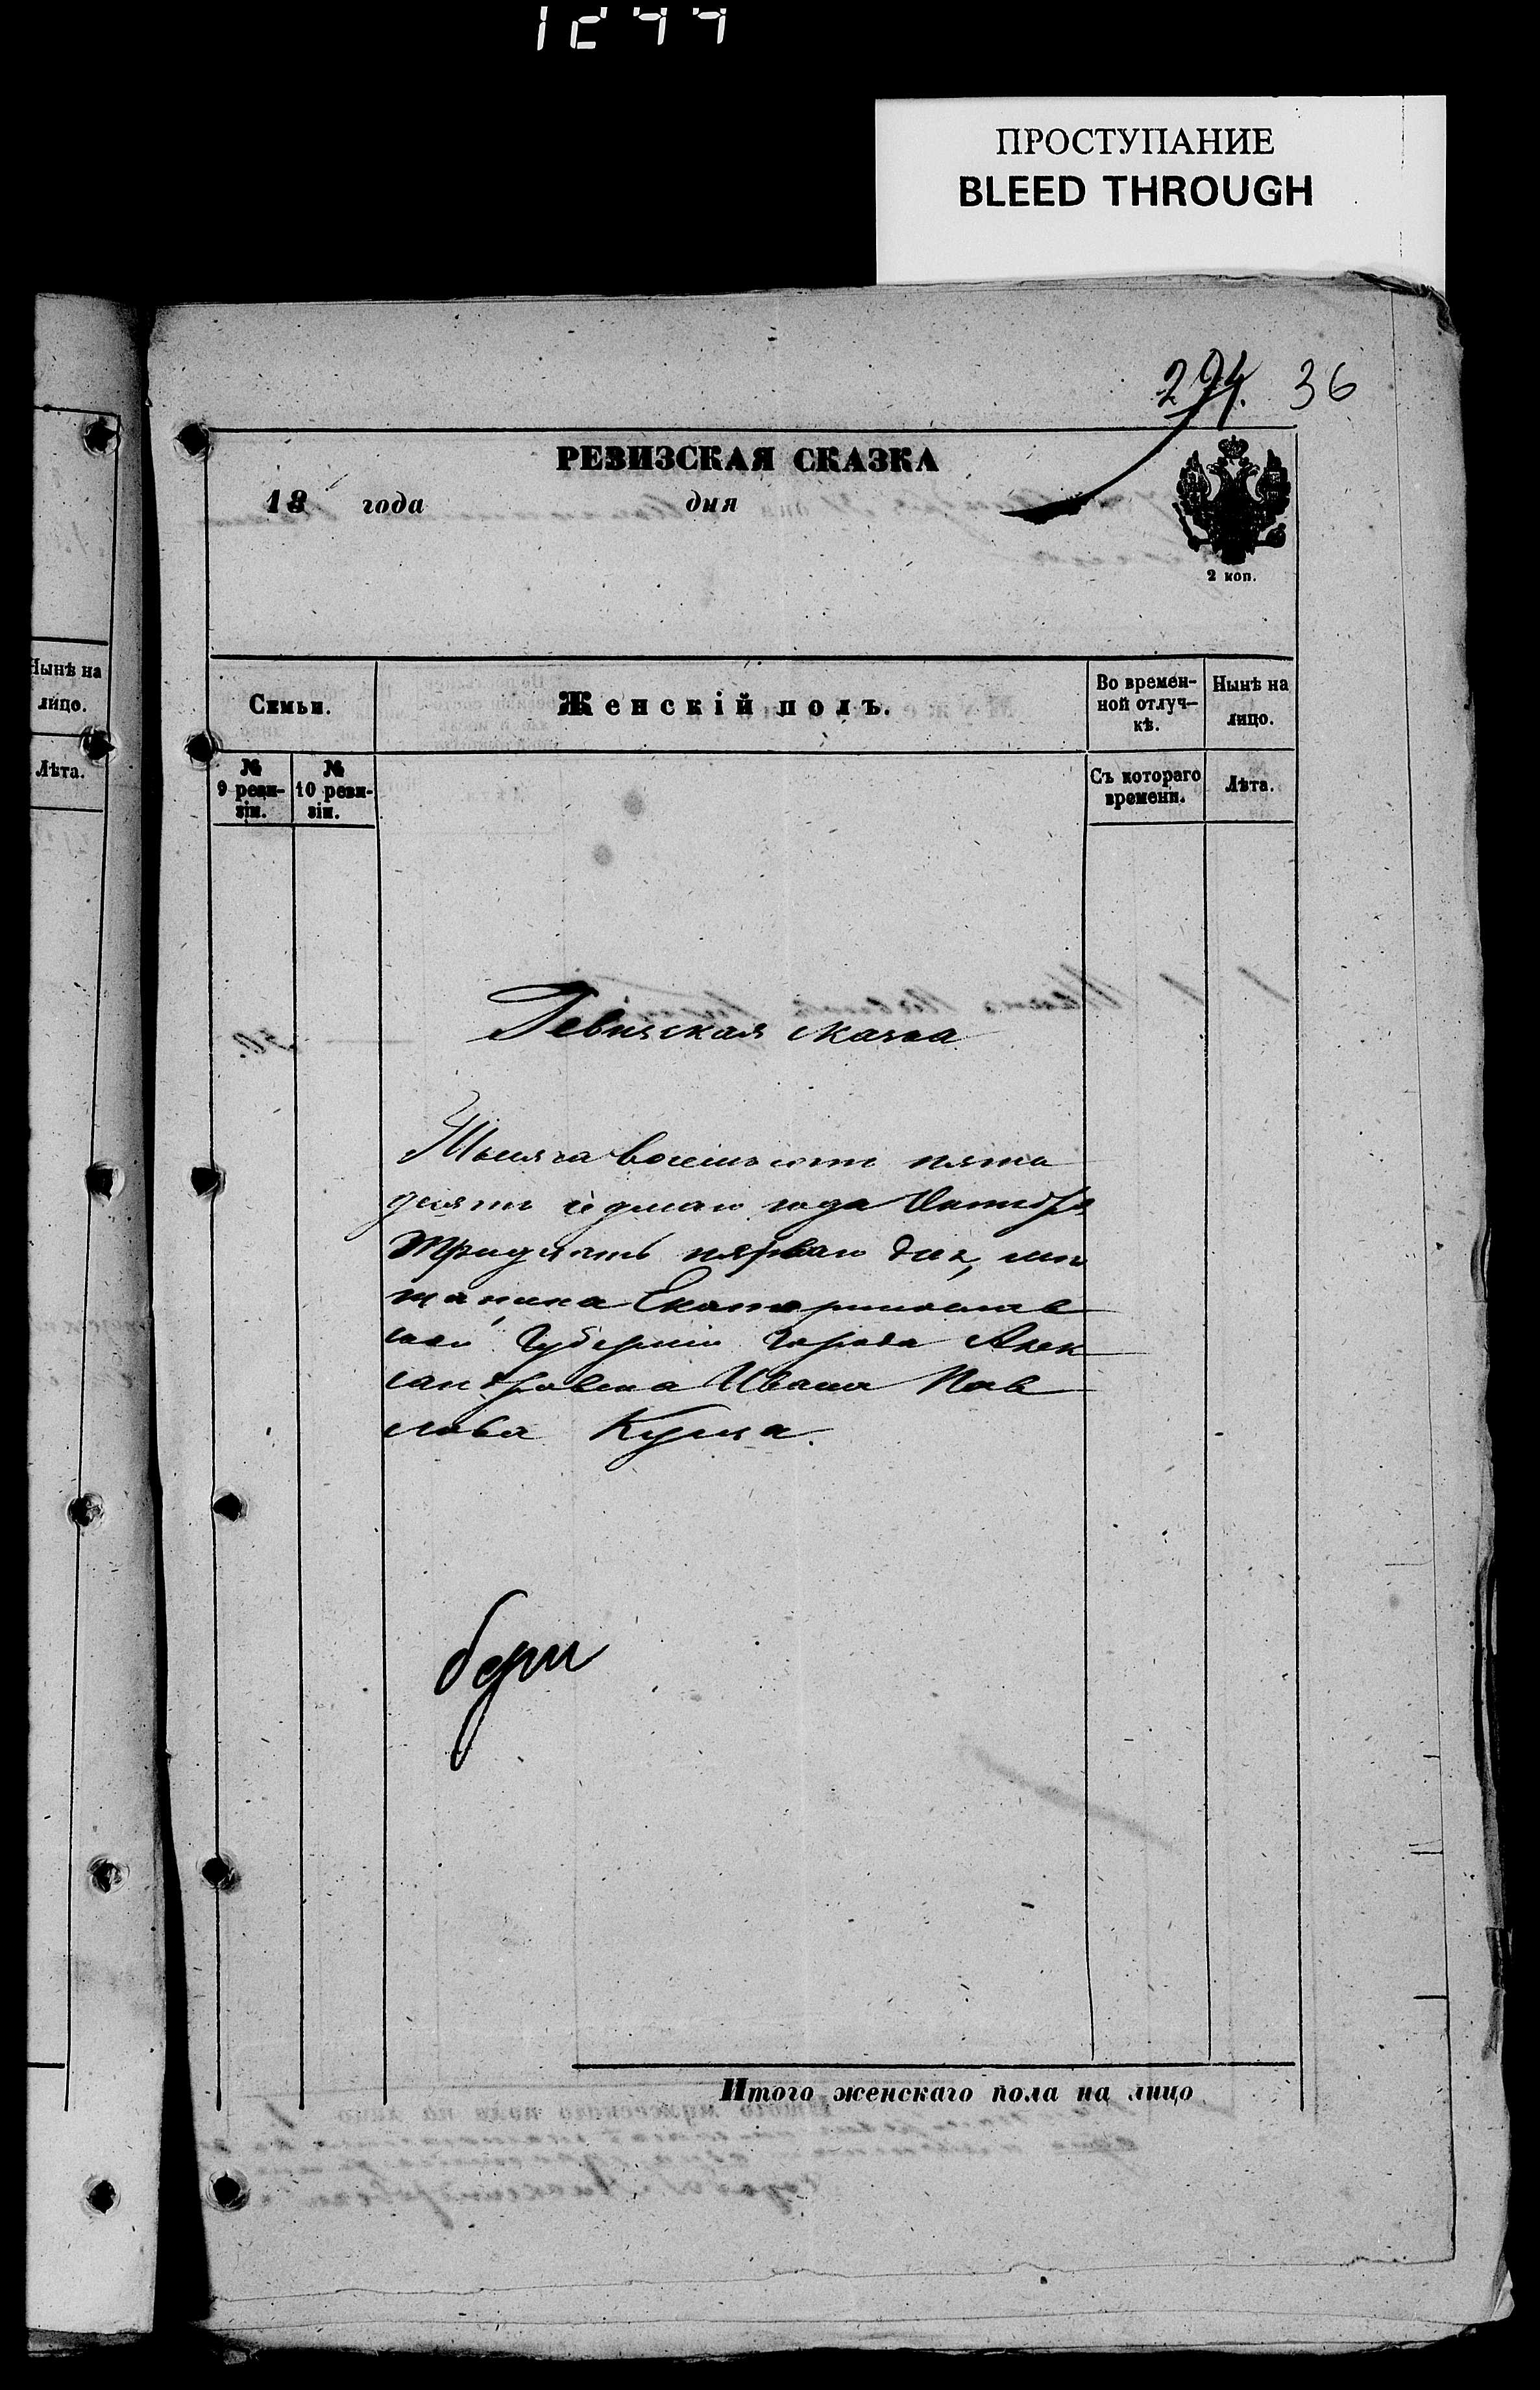 1277
ПРОСТУПАНИЕ
BLEED THROUGH
294. 36
РЕВИЗСКАЯ СКАЗКА
18 года дня
2 коп.
Нынѣ на
лицо.
Лѣта.
Семьи.
Женскій полъ.
Во времен-
ной отлуч-
кѣ.
Нынѣ на
лицо.
№
9 реви-
зіи.
№
10 реви-
зіи.
Съ котораго
времени.
Лѣта.
Ревизская сказка
Тысяча восемьсотъ пятьде
сятъ седмаго года Октября
тридцать перваго дня, мѣ
щанина Екатеринослав
ской Губерніи города Алек
сандровска Ивана Пав
лова
Итого женскаго пола на лицо